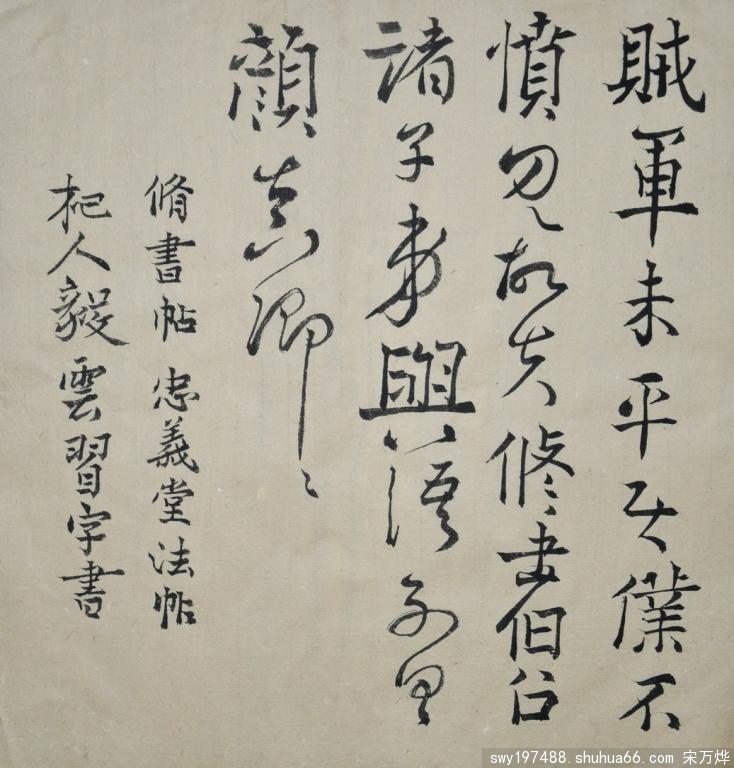 賊軍未平僕不
憤故先修書
諸子
顏真卿
脩書帖 忠義堂法帖
杞人毅雲習字書
swy197488.shuhua66.com 宋万烨